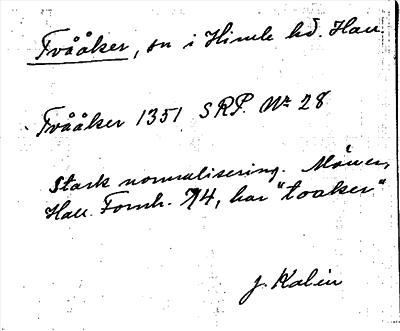 Tvååker, sn i Himle hd. Hall.
Tvååker 1351 SRP. Nr 28
Stark normalisering. Möller,
Hall. Fornh. 74, har "toaker"
J. Kalén